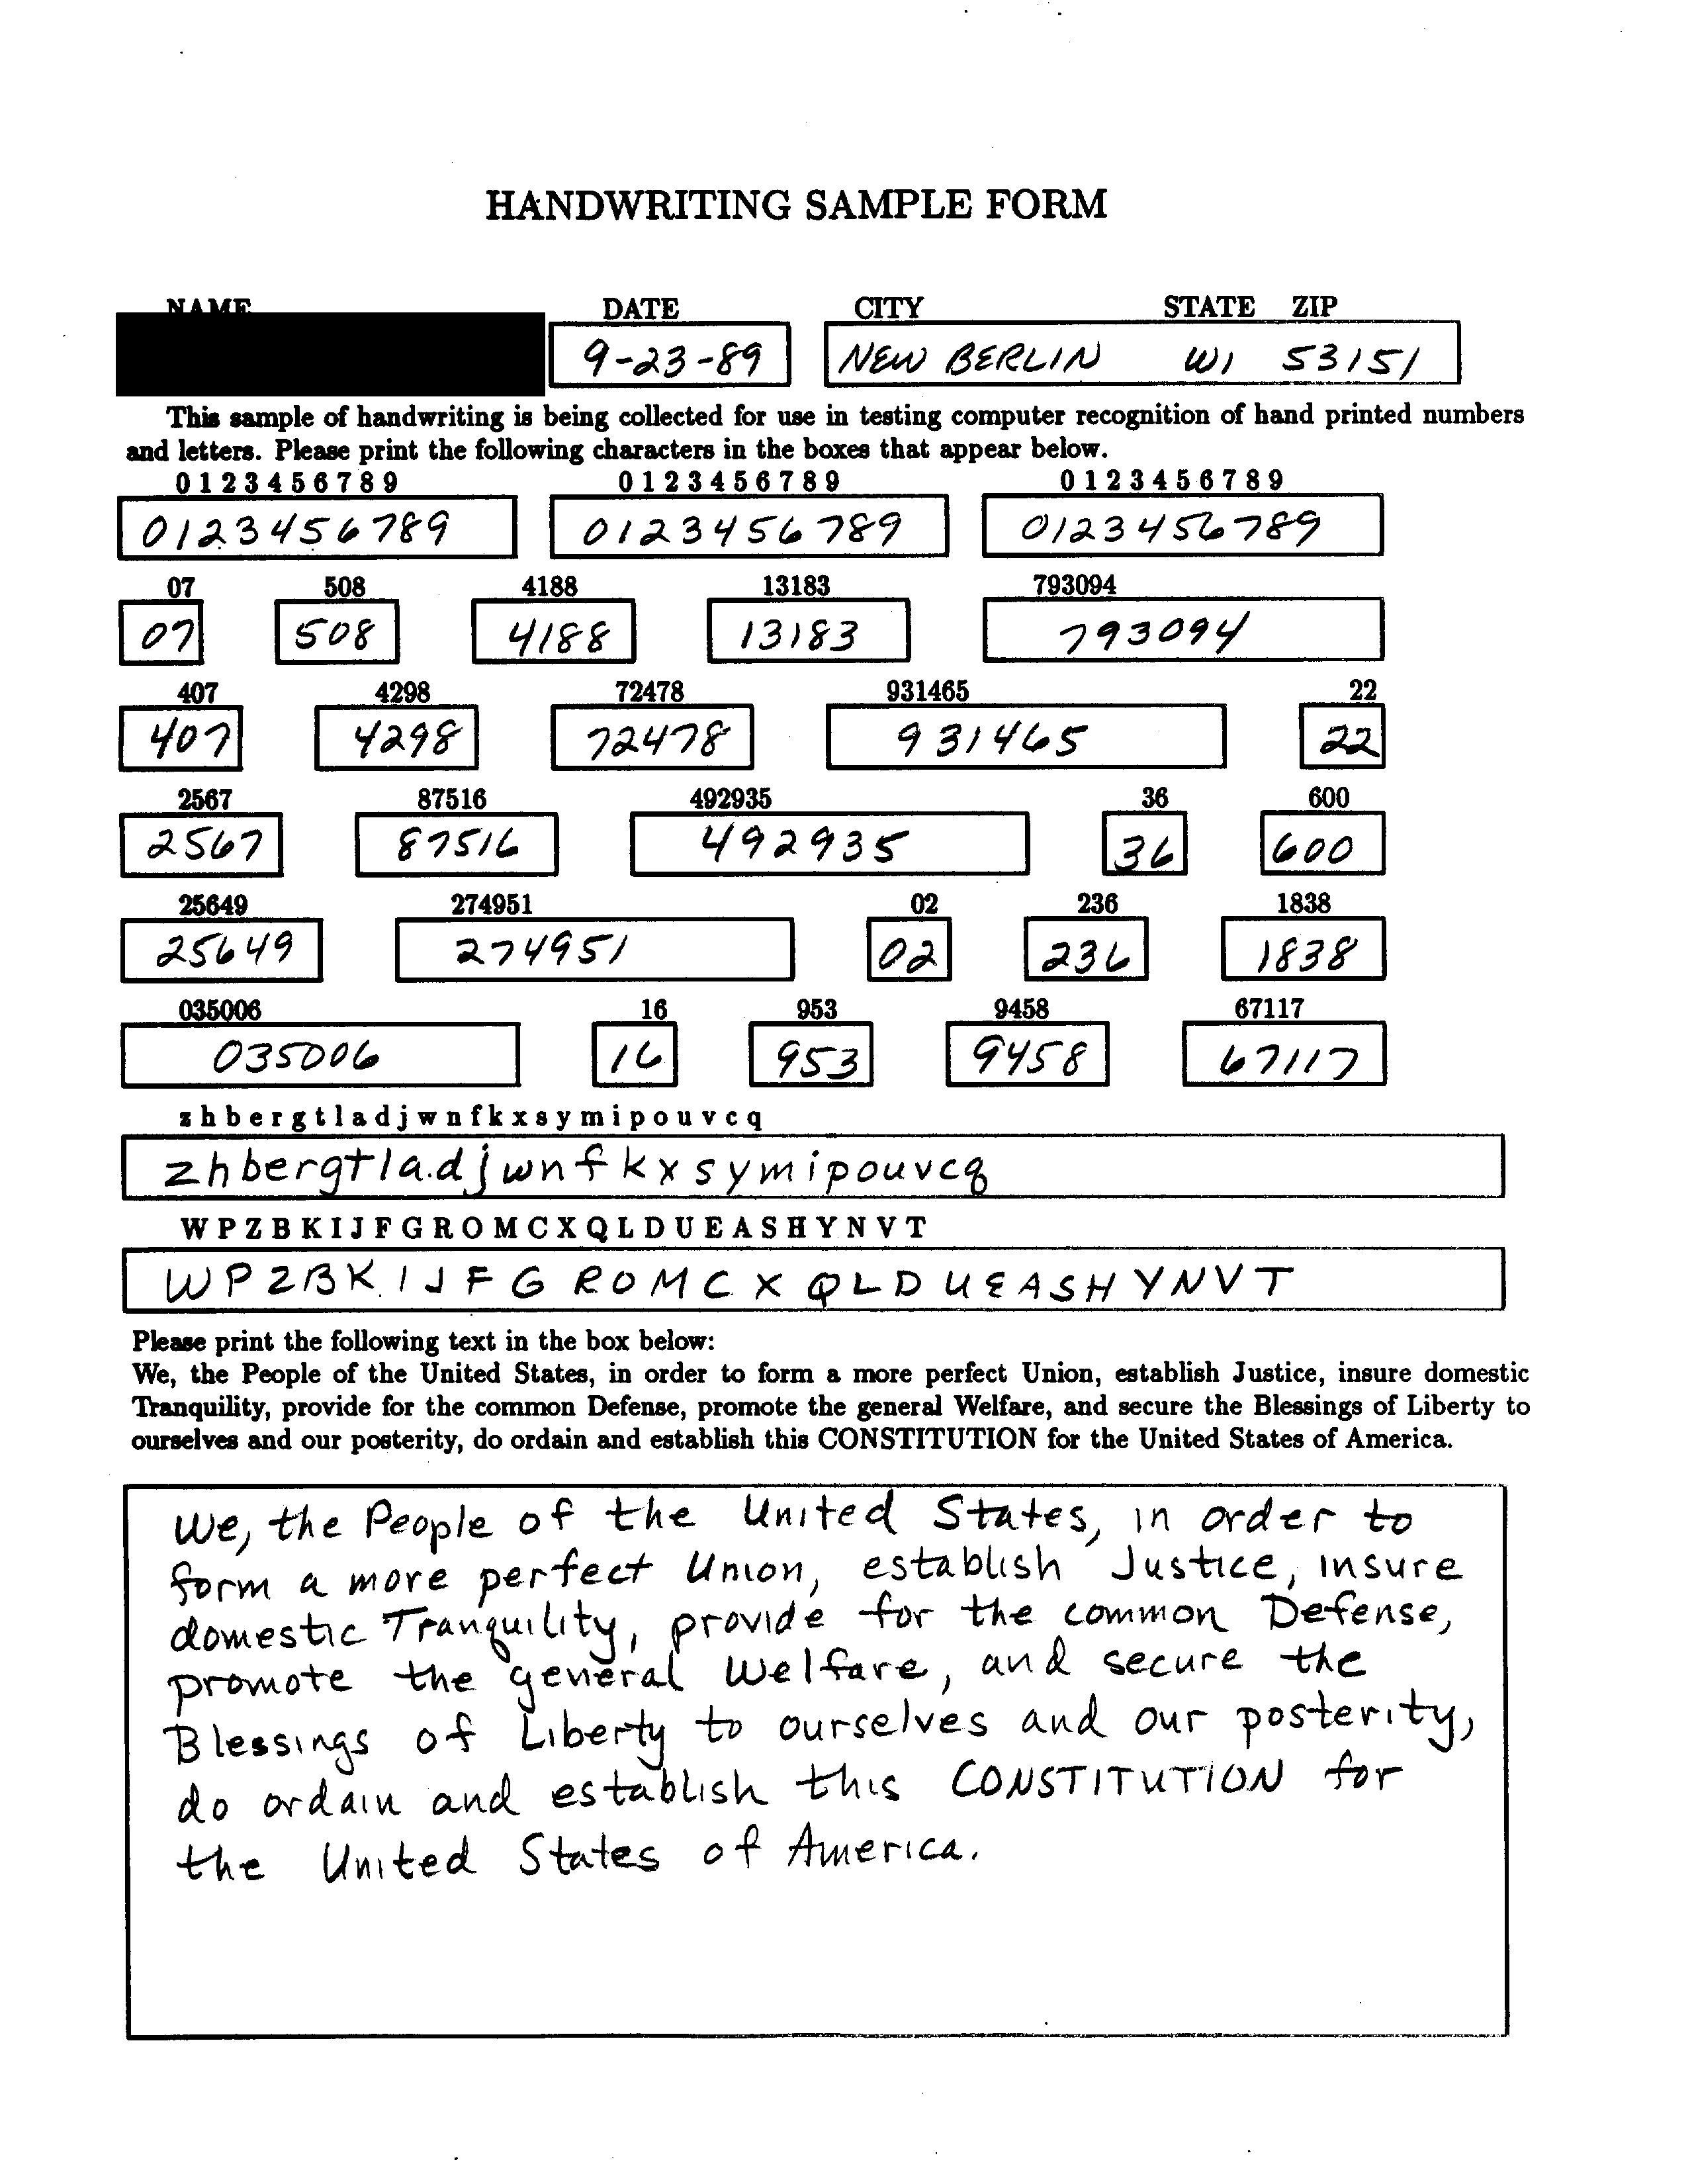 HANDWRITING SAMPLE FORM
NAME DATE CITY STATE ZIP
9-23-89 NEW BERLIN WI 53151
This sample of handwriting is being collected for use in testing computer recognition of hand printed numbers
and letters. Please print the following characters in the boxes that appear below.
0 1 2 3 4 5 6 7 8 9 0 1 2 3 4 5 6 7 8 9 0 1 2 3 4 5 6 7 8 9
0123456789 0123456789 0123456789
07 508 4188 13183 793094
07 508 4188 13183 793094
407 4298 72478 931465 22
407 4298 72478 931465 22
2567 87516 492935 36 600
2567 87516 492935 36 600
25649 274951 02 236 1838
25649 274951 02 236 1838
035006 16 953 9458 67117
035006 16 953 9458 67117
z h b e r g t l a d j w n f k x s y m i p o u v c q
zhbergtladjwnfkxsymipouvcq
W P Z B K I J F G R O M C X Q L D U E A S H Y N V T
W P Z B K I J F G R O M C X Q L D U E A S H Y N V T
Please print the following text in the box below:
We, the People of the United States, in order to form a more perfect Union, establish Justice, insure domestic
Tranquility, provide for the common Defense, promote the general Welfare, and secure the Blessings of Liberty to
ourselves and our posterity, do ordain and establish this CONSTITUTION for the United States of America.
We, the People of the United States, in order to
form a more perfect Union, establish Justice, insure
domestic Tranquility, provide for the common Defense,
promote the general Welfare, and secure the
Blessings of Liberty to ourselves and our posterity,
do ordain and establish this CONSTITUTION for
the United States of America.